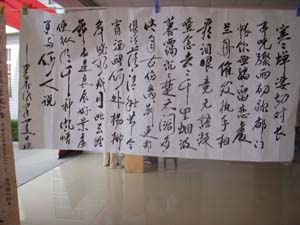 寒蝉凄切对长
亭晚骤雨初歇都门
帐饮无绪留恋處
兰舟催发执手相
看泪眼竟无语凝
噎念去去千里烟波
暮霭沉沉楚天阔多
情自古伤离别更那
堪冷落清秋节今
宵酒醒何处杨柳
岸晓风残月此去经
年应是良辰好景虚
设便纵有千种风情
更与何人说